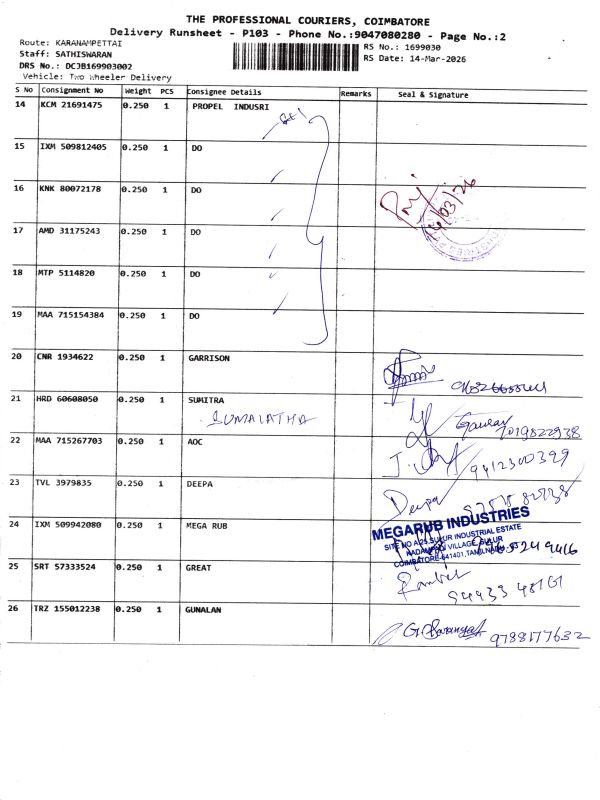 THE PROFESSIONAL COURIERS, COIMBATORE
Delivery Runsheet - P103 - Phone No.:9047080280 - Page No.:2
Route: KARANAMPETTAI
RS No.: 1699030
Staff: SATHISWARAN
RS Date: 14-Mar-2026
DRS No.: DCJB169903002
Vehicle: Two Wheeler Delivery
S No Consignment No Weight PCS Consignee Details Remarks Seal & Signature
14 KCM 21691475 0.250 1 PROPEL INDUSRI
15 IXM 509812405 0.250 1 DO
16 KNK 80072178 0.250 1 DO
14/03/26
17 AMD 31175243 0.250 1 DO
18 MTP 5114820 0.250 1 DO
19 MAA 715154384 0.250 1 DO
20 CNR 1934622 0.250 1 GARRISON
21 HRD 60608050 0.250 1 SUMITRA
SUMALATHA
Gaurav 7019822938
22 MAA 715267703 0.250 1 AOC
9412300399
23 TVL 3979835 0.250 1 DEEPA
Deepa
24 IXM 509942080 0.250 1 MEGA RUB
MEGARUB INDUSTRIES
SITE NO A 25, SULUR INDUSTRIAL ESTATE
KADAMPADI VILLAGE, SULUR
COIMBATORE-641401, TAMILNADU
25 SRT 57333524 0.250 1 GREAT
94933 48161
26 TRZ 155012238 0.250 1 GUNALAN
9788177632